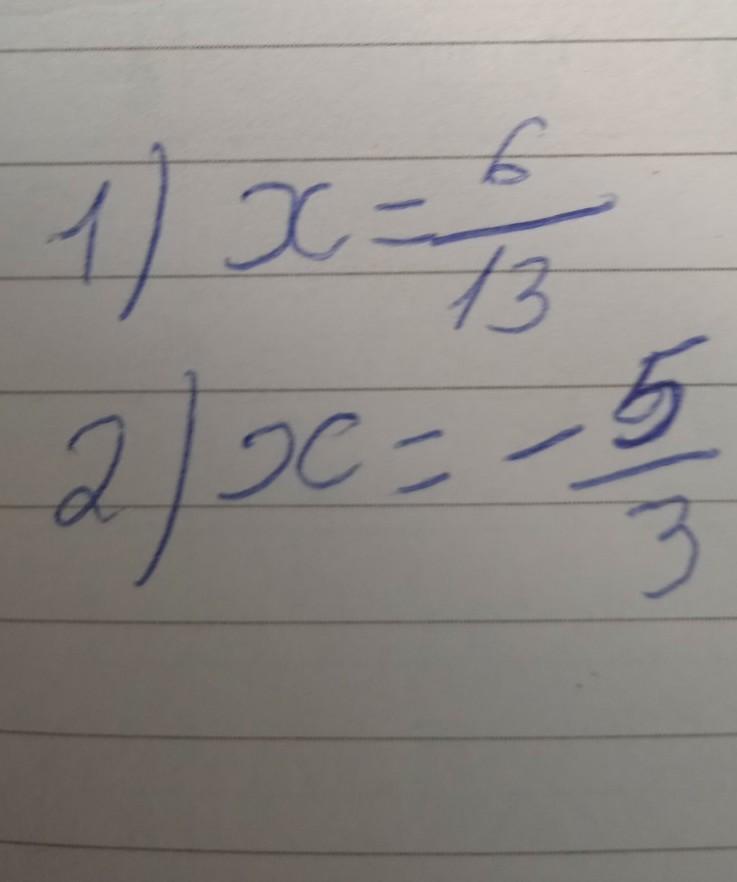 1) x = 6/13
2) x = - 5/3